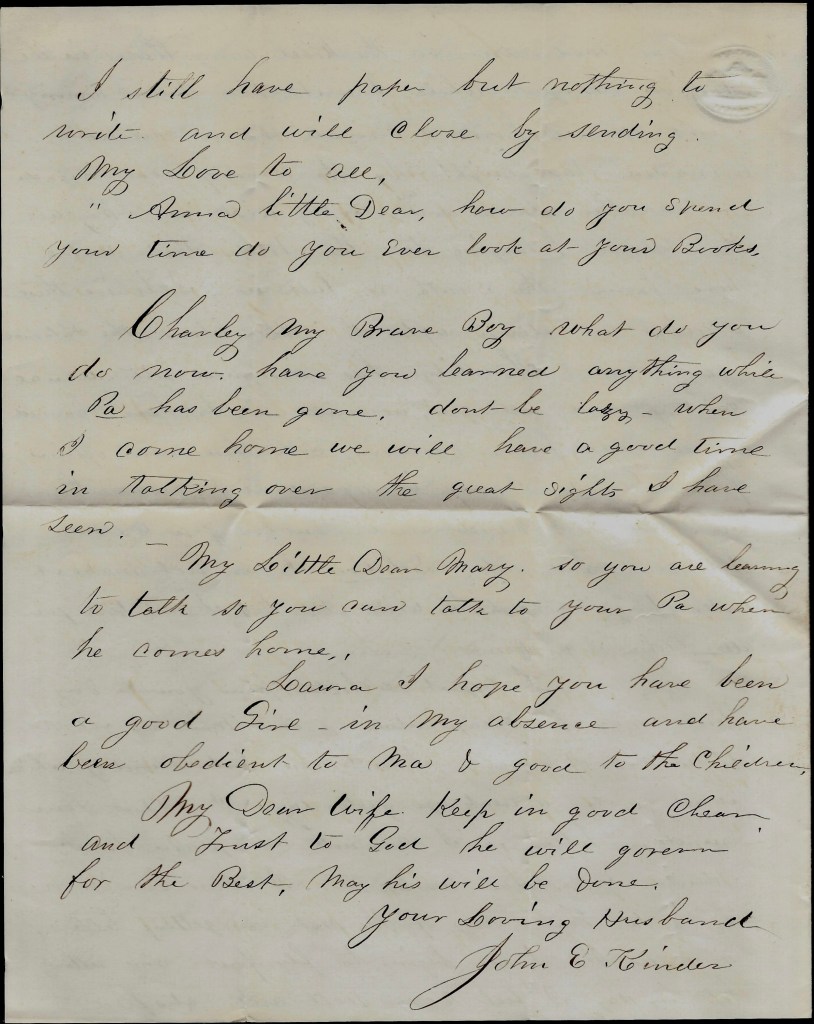 I still have paper but nothing to
write and will close by sending.
My Love to all,
" Anna little Dear, how do you spend
your time do you Ever look at your Books,
Charley My Brave Boy what do you
do now. have you learned anything while
Pa has been gone. dont be lazy - when
I come home we will have a good time
in talking over the great sights I have
seen. -
My Little Dear Mary. so you are learning
to talk so you can talk to your Pa when
he comes home,.
Laura I hope you have been
a good Girl - in My absence and have
been obedient to Ma & good to the Children,
My Dear Wife Keep in good Chear
and Trust to God he will govern
for the Best, May his will be done.
Your Loving Husband
John E Kinder